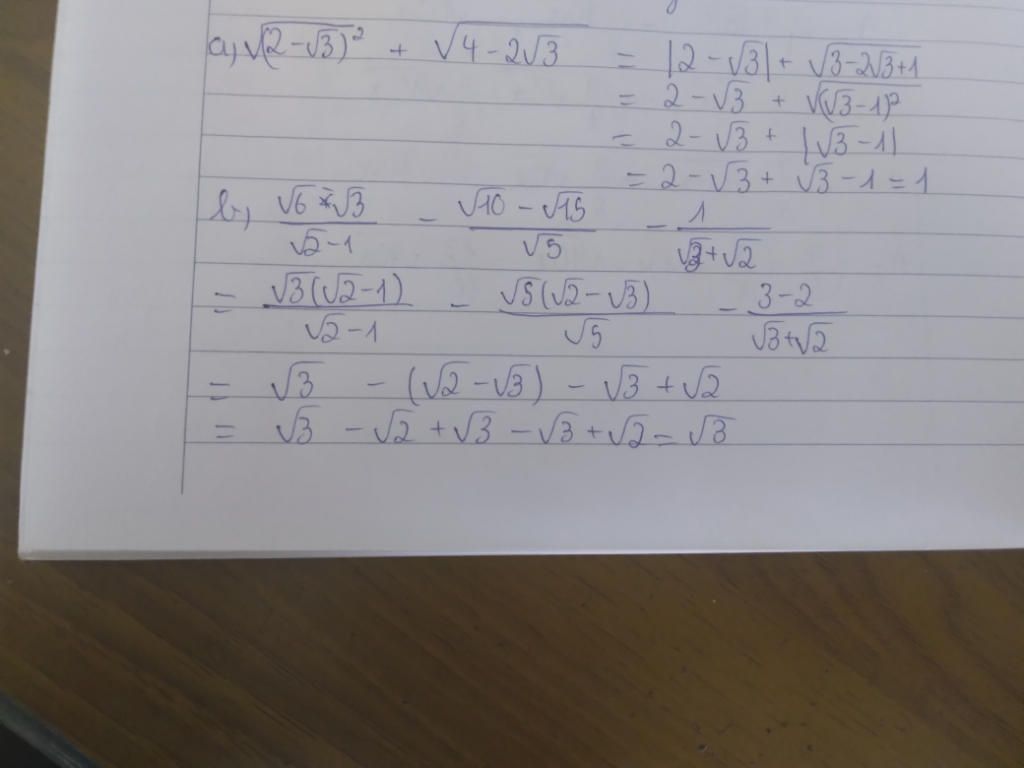 a, √(2-√3)² + √4-2√3 = |2-√3| + √3-2√3+1
= 2-√3 + √(√3-1)²
= 2-√3 + |√3-1|
= 2-√3 + √3-1 = 1
b, √6-√3/√2-1 - √10-√15/√5 - 1/√3+√2
= √3(√2-1)/√2-1 - √5(√2-√3)/√5 - 3-2/√3+√2
= √3 - (√2-√3) - √3+√2
= √3 -√2+√3-√3+√2=√3